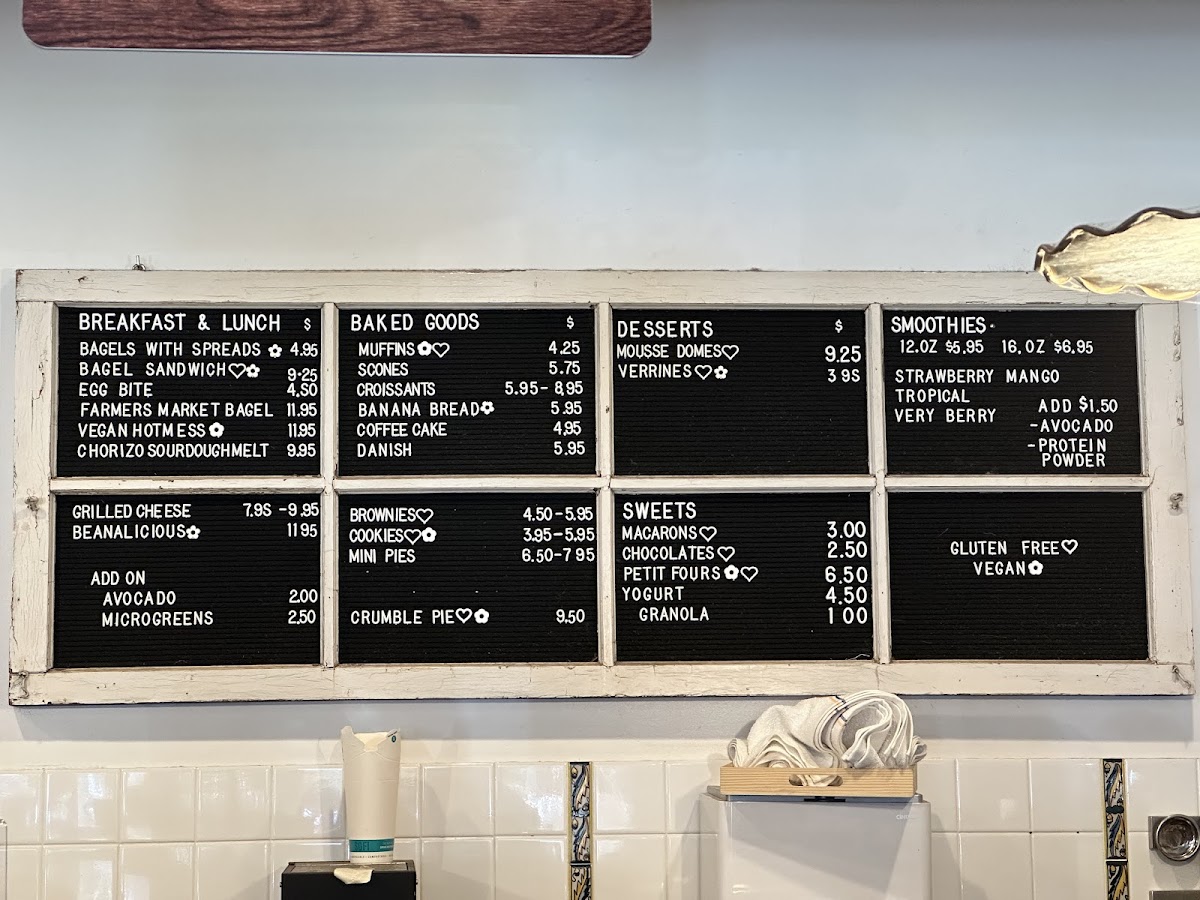 BREAKFAST & LUNCH $
BAGELS WITH SPREADS ✿ 4.95
BAGEL SANDWICH♡✿ 9-25
EGG BITE 4.SO
FARMERS MARKET BAGEL 11.95
VEGAN HOTMESS✿ 11.95
CHORIZO SOURDOUGHMELT 9.95
GRILLED CHEESE 7.9S -9.95
BEANALICIOUS✿ 11 95
ADD ON
AVOCADO 2.00
MICROGREENS 2.50
BAKED GOODS $
MUFFINS✿♡ 4.25
SCONES 5.75
CROISSANTS 5.95- 8.95
BANANA BREAD✿ 5.95
COFFEE CAKE 4.95
DANISH 5.95
BROWNIES♡ 4.50-5.95
COOKIES♡✿ 3.95-5.95
MINI PIES 6.50-7 95
CRUMBLE PIE♡✿ 9.50
DESSERTS $
MOUSSE DOMES♡ 9.25
VERRINES♡✿ 3 9S
SWEETS
MACARONS♡ 3.00
CHOCOLATES♡ 2.50
PETIT FOURS✿♡ 6.50
YOGURT 4.50
GRANOLA 1 00
SMOOTHIES·
12.OZ $5.95 16.OZ $6.95
STRAWBERRY MANGO
TROPICAL
VERY BERRY
ADD $1.50
-AVOCADO
-PROTEIN
POWDER
GLUTEN FREE♡
VEGAN✿